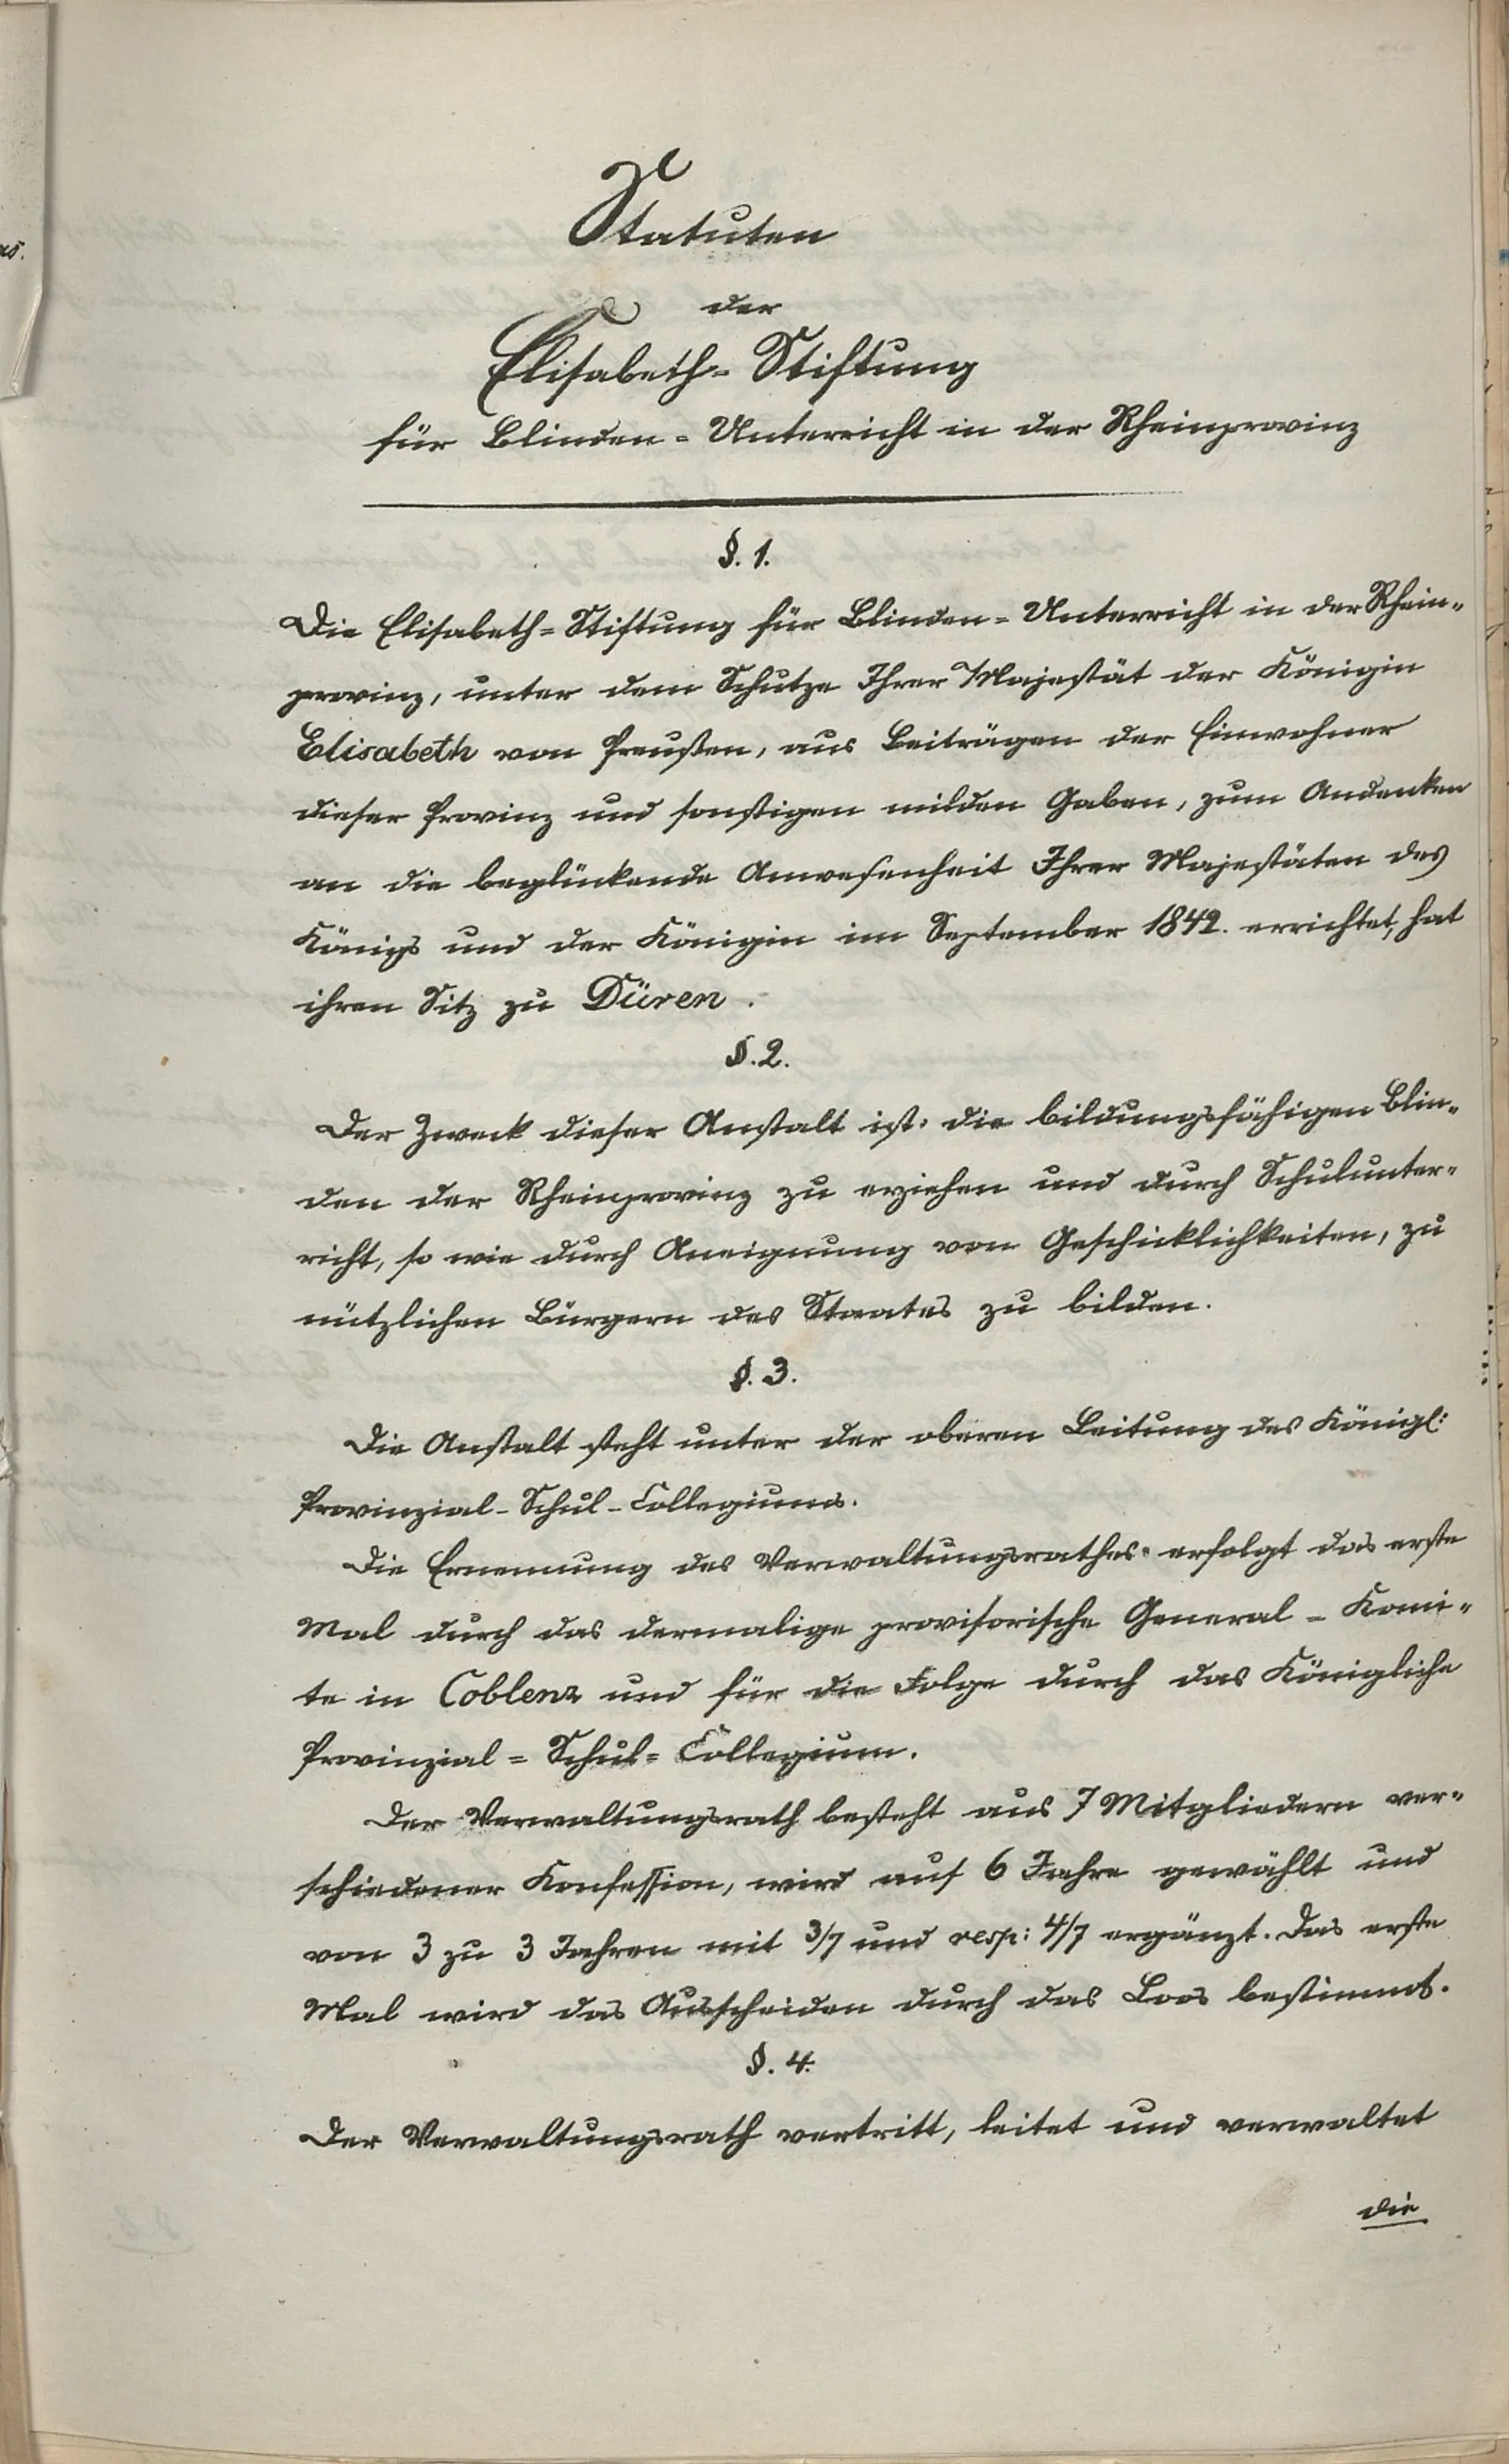 Statuten
der
Elisabeth-Stiftung
für Blinden-Unterricht in der Rheinprovinz
§. 1.
Die Elisabeth-Stiftung für Blinden-Unterricht in der Rhein-
provinz, unter dem Schutze Ihrer Majestät der Königin
Elisabeth von Preußen, aus Beiträgen der Einwohner
dieser Provinz und sonstigen milden Gaben, zum Andenken
an die beglückende Anwesenheit Ihrer Majestäten des
Königs und der Königin im September 1842. errichtet, hat
ihren Sitz zu Düren.
§. 2.
Der Zweck dieser Anstalt ist: die bildungsfähigen Blin-
den der Rheinprovinz zu erziehen und durch Schulunter-
richt, so wie durch Aneignung von Geschicklichkeiten, zu
nützlichen Bürgern des Staates zu bilden.
§. 3.
Die Anstalt steht unter der oberen Leitung des Königl:
Provinzial-Schul-Collegiums.
Die Ernennung des Verwaltungsrathes erfolgt das erste
Mal durch das dermalige provisorische General-Komi-
te in Coblenz und für die Folge durch das Königliche
Provinzial-Schul-Collegium.
Der Verwaltungsrath besteht aus 7 Mitgliedern ver-
schiedener Konfession, wird auf 6 Jahre gewählt und
von 3 zu 3 Jahren mit 3/7 und resp: 4/7 ergänzt. Das erste
Mal wird das Ausscheiden durch das Loos bestimmt.
§. 4.
Der Verwaltungsrath vertritt, leitet und verwaltet
die